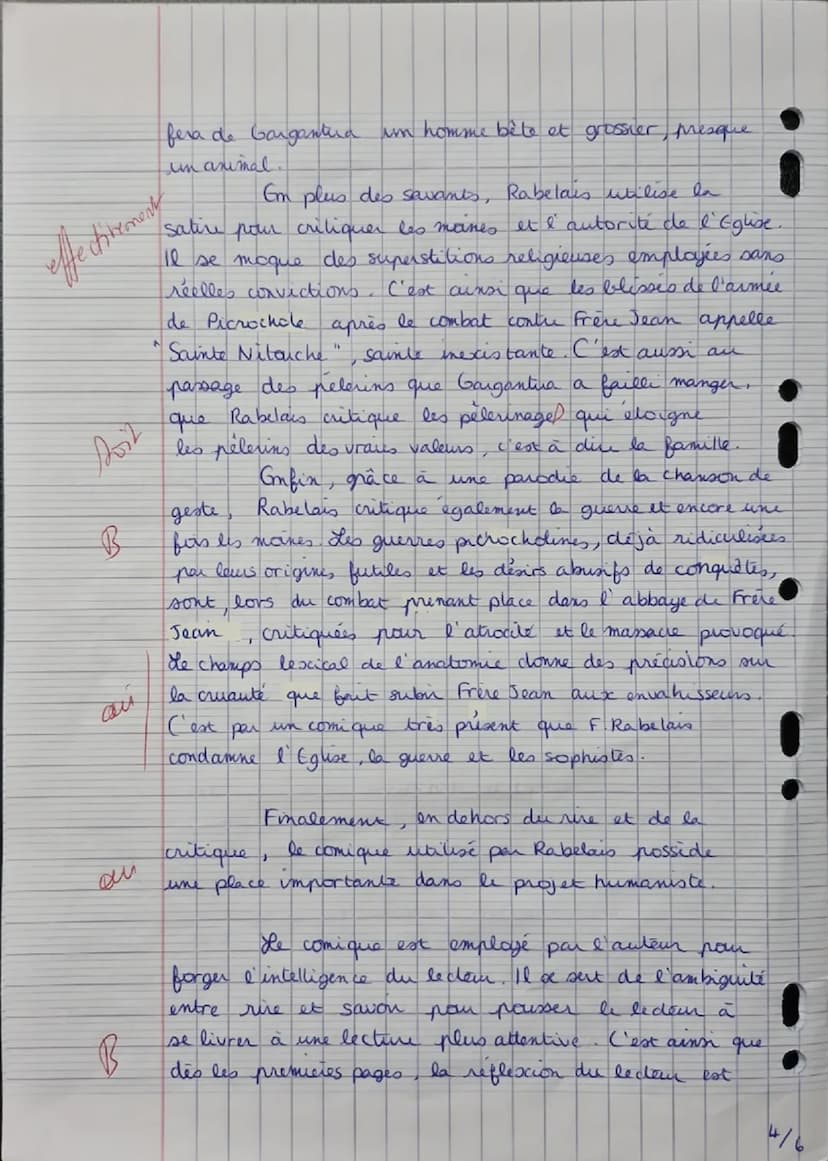 fera de Gargantua un homme bête et grossier, presque
un animal.
En plus des savants, Rabelais utilise la
effectivement
satire pour critiquer les moines et l'autorité de l'Eglise.
Il se moque des superstitions religieuses employées sans
réelles convictions. C'est ainsi que les blessés de l'armée
de Picrochole après le combat contre Frère Jean appelle
"Sainte Nitouche", sainte inexistante. C'est aussi au
passage des pélerins que Gargantua a failli manger,
que Rabelais critique les pélerinages qui éloigne
les pélerins des vraies valeurs, c'est à dire la famille.
Enfin, grâce à une parodie de la chanson de
geste, Rabelais critique également la guerre et encore une
B
fois les moines. Les guerres picrocholines, déjà ridiculisées
par leurs origines futiles et les désirs abusifs de conquêtes,
sont, lors du combat prenant place dans l'abbaye de Frère
Jean, critiquées pour l'atrocité et le massacre provoqué.
Le champs lexical de l'anatomie donne des précisions sur
la cruauté que fait subir Frère Jean aux envahisseurs.
oui
C'est par un comique très présent que F. Rabelais
condamne l'Eglise, la guerre et les sophistes.
Finalement, en dehors du rire et de la
critique, le comique utilisé par Rabelais possède
oui
une place importante dans le projet humaniste.
Le comique est employé par l'auteur pour
forger l'intelligence du lecteur. Il se sert de l'ambiguité
entre rire et savoir pour pousser le lecteur à
se livrer à une lecture plus attentive. C'est ainsi que
B
dès les premières pages, la réflexion du lecteur est
4/6